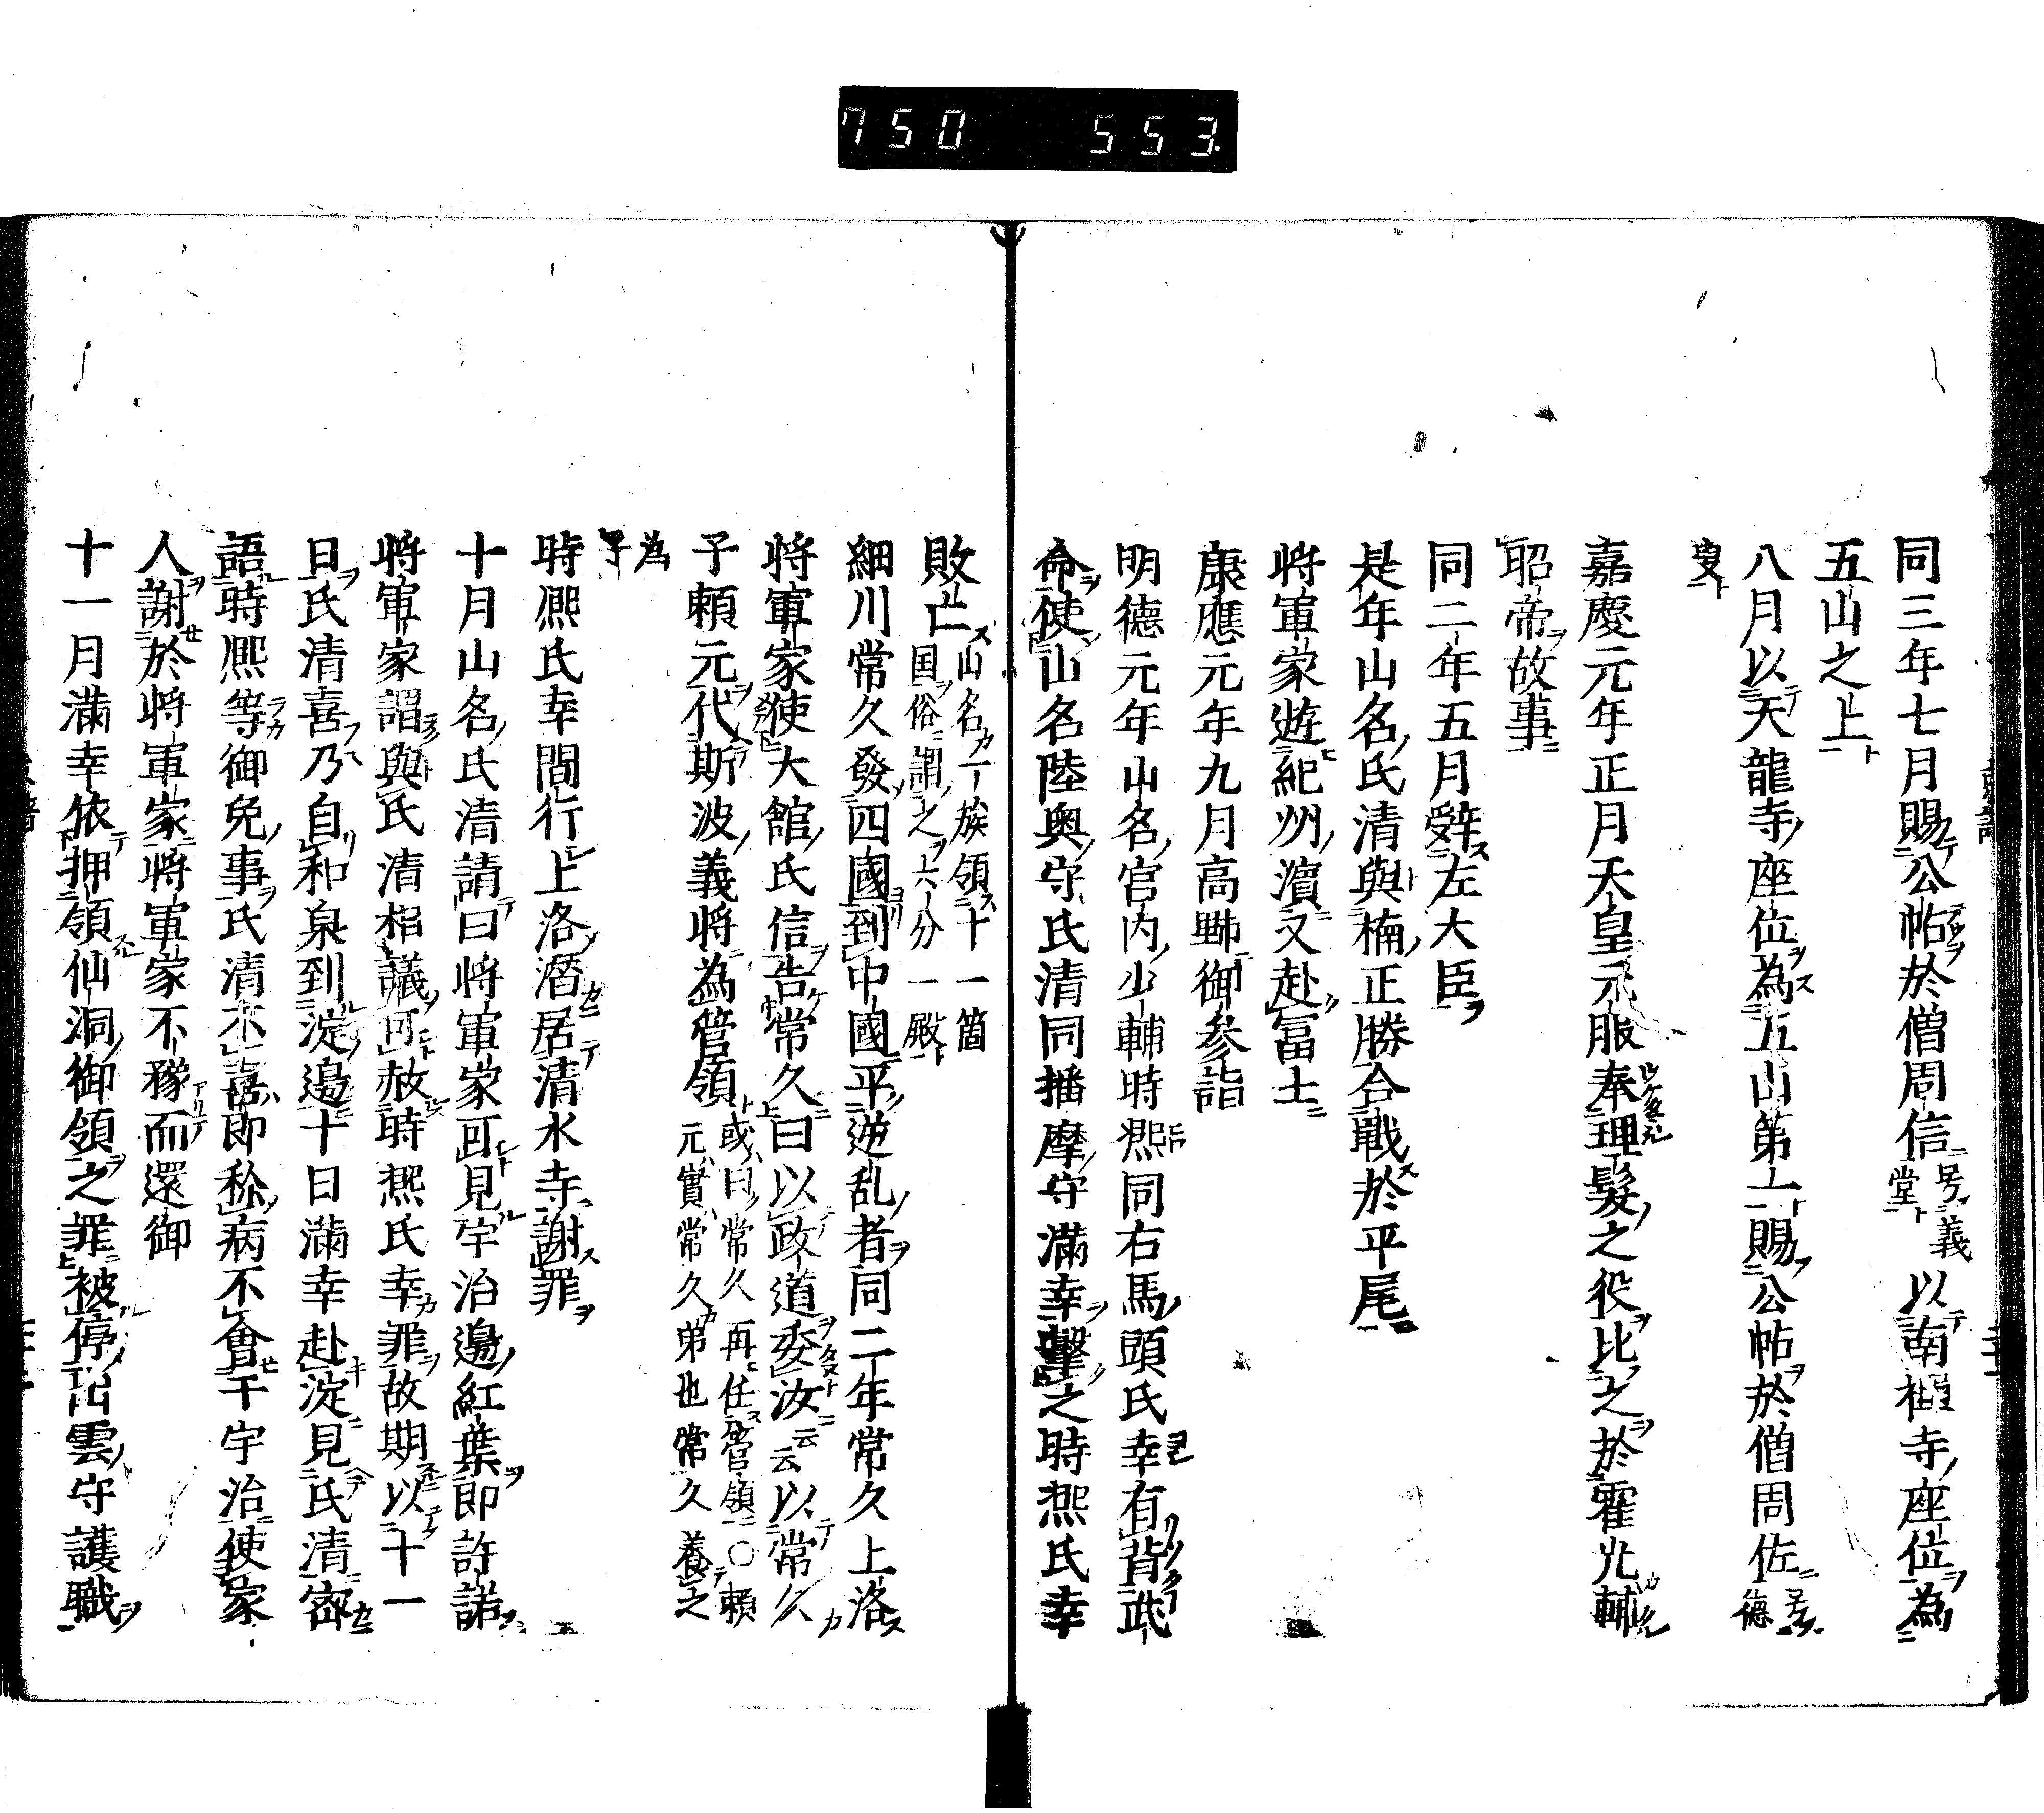 750 553
同三年七月賜公帖於僧周信号義堂以南禅寺座位為
五山之上
八月以天龍寺座位為五山第一賜公帖於僧周佐号德
叟
嘉慶元年正月天皇元服奉理髪之役比之於霍光輔
昭帝故事
同二年五月辞左大臣
是年山名氏清與楠正勝合戰於平尾
将軍家遊紀州濱又赴冨士
康應元年九月高野御参詣
明徳元年山名宮内少輔時熈同右馬頭氏幸有背武
命使山名陸奥守氏清同播摩守満幸撃之時熈氏幸
敗亡山名一族領十一箇国俗謂之六分一殿
細川常久發四國到中國平逆乱者同二年常久上洛
将軍家使大館氏信告常久曰以政道委汝云云以常久
子頼元代斯波義将為管領或曰常久再任管領〇頼元實常久弟也常久養之
為子
時熈氏幸間行上洛潜居清水寺謝罪
十月山名氏清請曰将軍家可見宇治邊紅葉即許諾
将軍家謂與氏清相議可赦時熈氏幸罪故期以十一
日氏清喜乃自和泉到淀邊十日満幸赴淀見氏清密
語時熈等御免事氏清不喜即称病不會于宇治使家
人謝於将軍家将軍家不豫而還御
十一月満幸依押領仙洞御領之罪被停出雲守護職